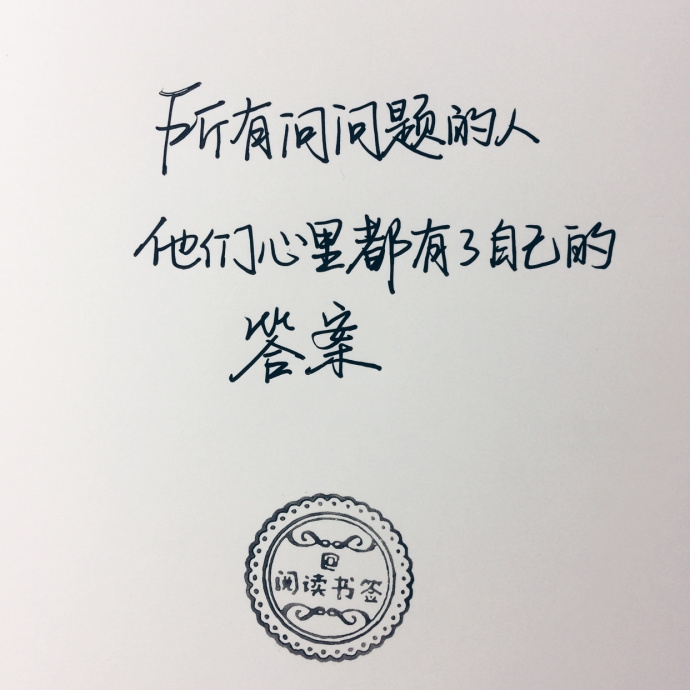 所有问问题的人
他们心里都有了自己的
答案
@
阅读书签